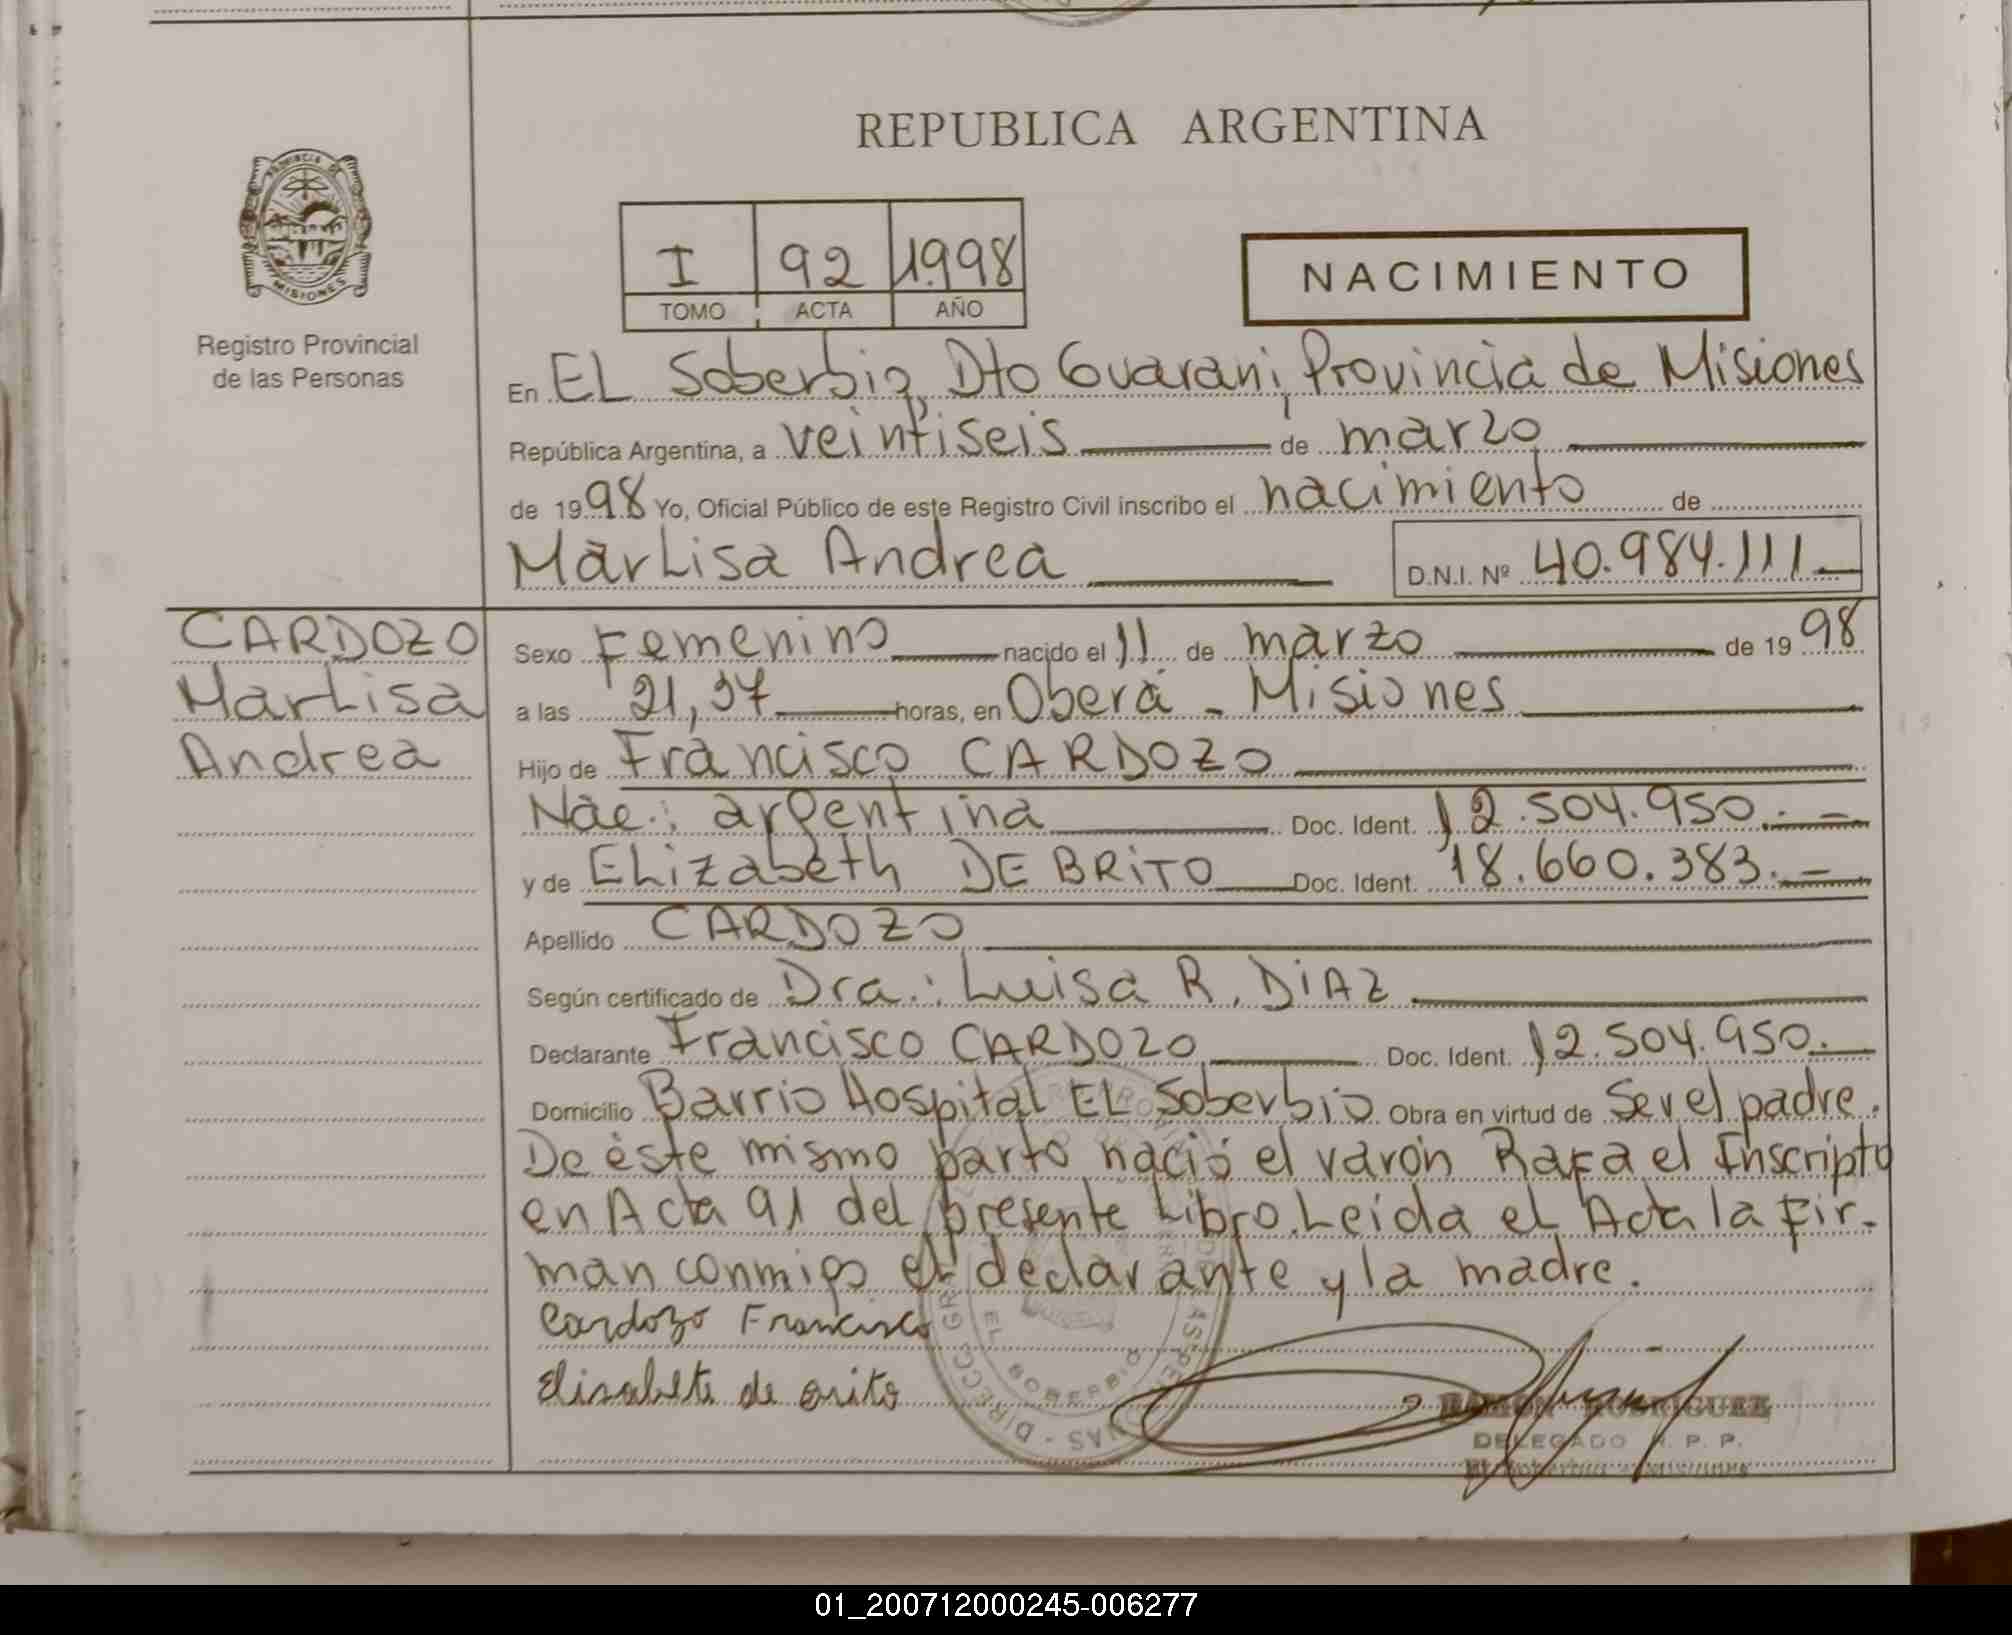 REPUBLICA ARGENTINA
PROVINCIA DE
MISIONES
Registro Provincial
de las Personas
I 92 1.998
TOMO ACTA AÑO
NACIMIENTO
En EL Soberbio, Dto Guarani, Provincia de Misiones
República Argentina, a veintiseis de marzo
de 1998 Yo, Oficial Público de este Registro Civil inscribo el nacimiento de
MarLisa Andrea D.N.I. Nº 40.984.111
CARDOZO
MarLisa
Andrea
Sexo Femenino nacido el 11 de marzo de 1998
a las 21,37 horas, en Oberá - Misiones
Hijo de Francisco CARDOZO
Nac.: argentina Doc. Ident. 12.504.950.-
y de ELizabeth DE BRiTO Doc. Ident. 18.660.383.-
Apellido CARDOZO
Según certificado de Dra.: Luisa R. DiAZ
Declarante Francisco CARDOZO Doc. Ident. 12.504.950.
Domicilio Barrio Hospital EL Soberbio Obra en virtud de Ser el padre.
De éste mismo parto nació el varón Rafael Inscripto
en Acta 91 del presente Libro. Leida el Acta la fir-
man conmigo el declarante y la madre.
Cardozo Francisco
Elisabete de
EL SOBERBIO
RAMON RODRIGUEZ
DELEGADO R. P. P.
El Soberbio - Misiones
01_200712000245-006277